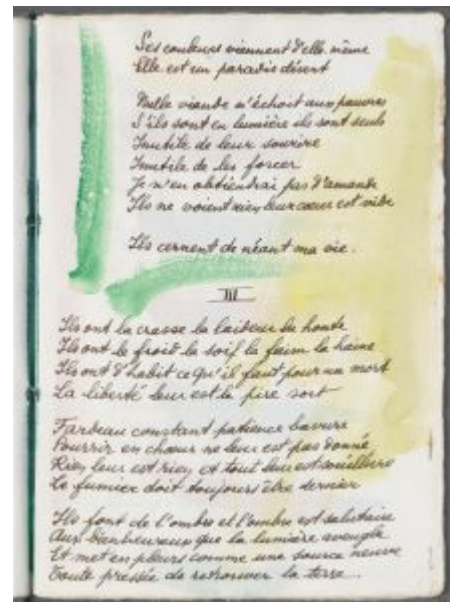 Ses couleurs viennent d'elle même
Elle est un paradis désert
Nulle viande n'échoit aux pauvres
S'ils sont en lumière ils sont seuls
Inutile de leur sourire
Inutile de les forcer
Je n'en obtiendrai pas d'amande
Ils ne voient rien leur cœur est vide
Ils cernent de néant ma vie.
III
Ils ont la crasse la laideur la honte
Ils ont le froid la soif la faim la haine
Ils ont d'habit ce qu'il faut pour un mort
La liberté leur est le pire sort
Fardeau constant patience bavure
Pourrir en chœur ne leur est pas donné
Rien leur est rien et tout leur est
Le fumier doit toujours être dernier
Ils font de l'ombre et l'ombre est salutaire
Aux bienheureux que la lumière aveugle
Et met en pleurs comme une source neuve
Toute pressée de retrouver la terre...